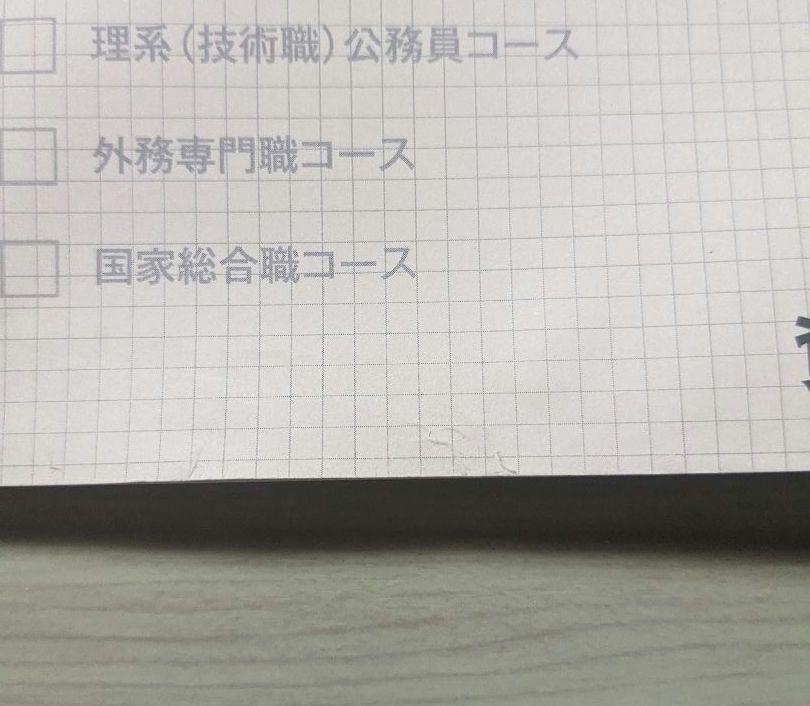 理系(技術職)公務員コース
外務専門職コース
国家総合職コース